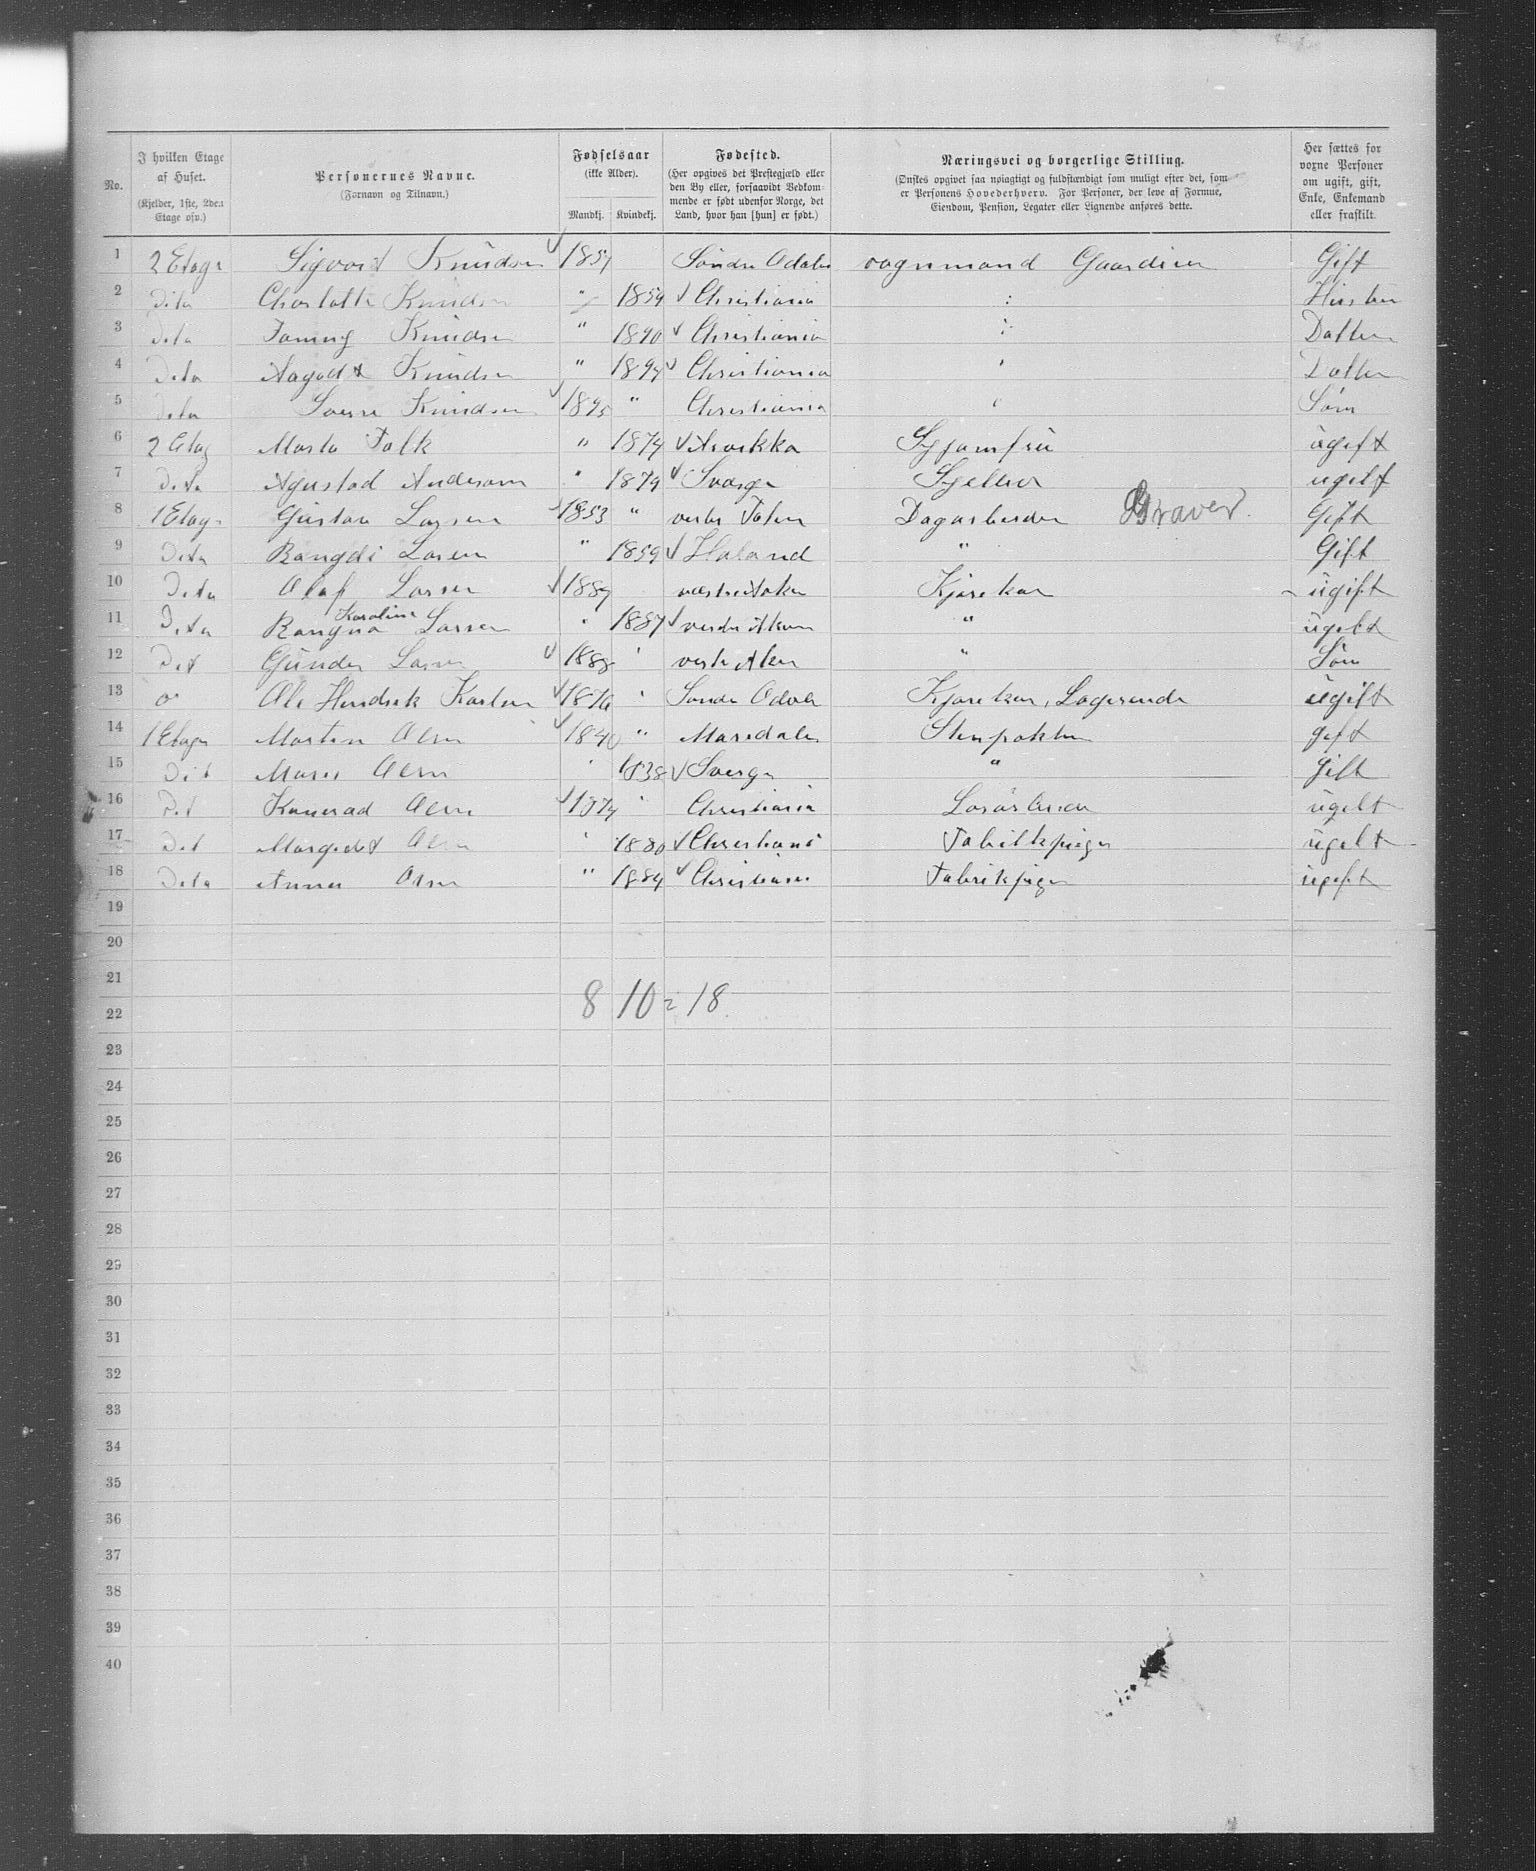 No.
I hvilken Etage af Huset.
(Kjelder, 1ste, 2den Etage osv.)
Personernes Navne.
(Fornavn og Tilnavn.)
Fødselsaar
(ikke Alder).
Mandkj. Kvindekj.
Fødested.
(Her opgives det Præstegjæld eller
den By eller, forsaavidt Vedkom-
mende er født udenfor Norge, det
Land, hvor han [hun] er født.)
Næringsvei og borgerlige Stilling.
(Ønskes opgivet saa nøiagtigt og fuldstændigt som muligt efter det, som
er Personens Hovederhverv. For Personer, der leve af Formue,
Eiendom, Pension, Legater eller Lignende anføres dette.
Her sættes for
voxne Personer
om ugift, gift,
Enke, Enkemand
eller fraskilt.
1 2 Etage Sigvart Knudsen 1857 Søndre Odalen vognmand Gaardeier Gift
2 Dito Charlotte Knudsen " 1859 Christiania
3 Dito Fanny Knudsen " 1890 Christiania Datter
4 Dito Aagodt Knudsen " 1894 Christiania Datter
5 Dito Sverre Knudsen 1895 " Christiania Søn
6 2 Etag Marta Falk " 1874 Arvikka Syjomfru ugift
7 Dito Agustad Anderson " 1879 Sverge ugift
8 1 Etage Gustav Larsen 1853 " vestre Toten Dagarbeider Graver. Gift
9 Dito Rangdi Larsen " 1859 Holand " Gift
10 Dito Olaf Larsen 1889 vestre Aker Kjørekar ugift
11 Dito Rangna Karoline Larsen 1887 vestre Akern " ugift
12 Dit Gunder Larsen 1888 vestre Aker " Søn
13 Ole Hendrik Karlsen 1876 Søndre Odalen Kjørekar, Logerende ugift
14 1 Etage Morten Olsen 1840 " Maridalen gift
15 Dit Olsen 1838 Sverge " Gift
16 Dit Konerad Olsen 1874 Christiania Løsarbeider ugift
17 Dit Margredt Olsen 1880 Christiani Fabrikkpige ugift
18 Dito Anna Olsen " 1884 Christiania Fabrikpige ugift
19
20
21
8 10 = 18
22
23
24
25
26
27
28
29
30
31
32
33
34
35
36
37
38
39
40